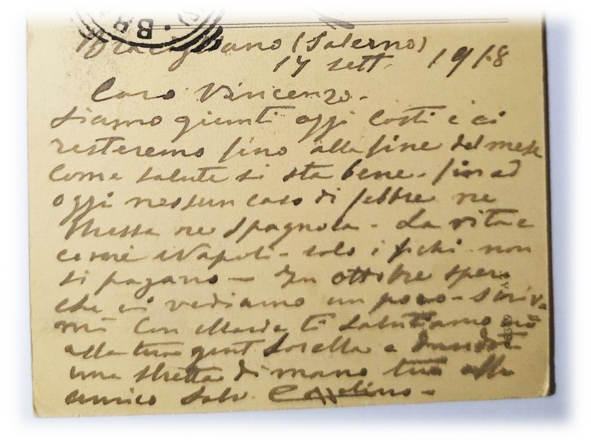 Bracigliano (Salerno)
17 sett. 1918
Caro Vincenzo.
Siamo giunti oggi costì e ci
resteremo fino alla fine del mese
Come salute si sta bene. fin ad
oggi nessun caso di febbre ne
ne spagnola. La vita è
come Napoli. solo i fichi non
si pagano — In ottobre spero
che ci vediamo un poco. Scriv.
mi Con Maria ti salutiamo
alla tua gent. Sorella e dandoti
una stretta di mano
amico Salv.